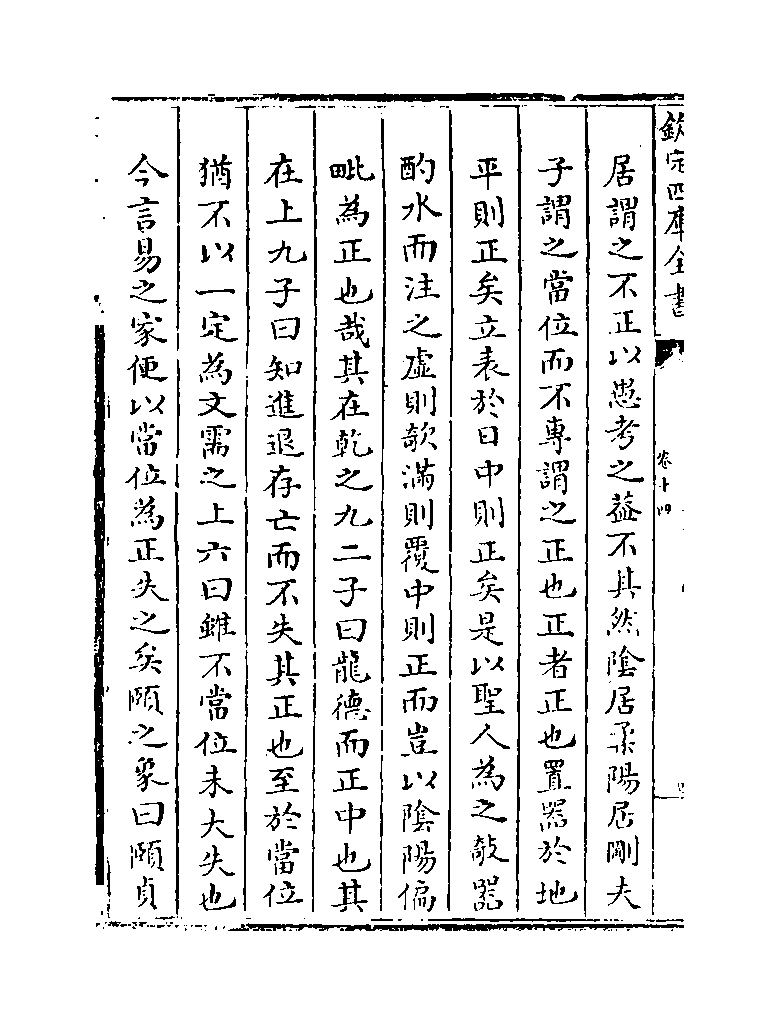 欽定四庫全書
卷十四
居謂之不正以愚考之蓋不其然陰居柔陽居剛夫
子謂之當位而不專謂之正也正者正也置器於地
平則正矣立表於日中則正矣是以聖人為之敧器
酌水而注之虛則欹滿則覆中則正而豈以陰陽偏
毗為正也哉其在乾之九二子曰龍德而正中也其
在上九子曰知進退存亡而不失其正也至於當位
猶不以一定為文需之上六曰雖不當位未大失也
今言易之家便以當位為正失之矣頤之彖曰頤貞